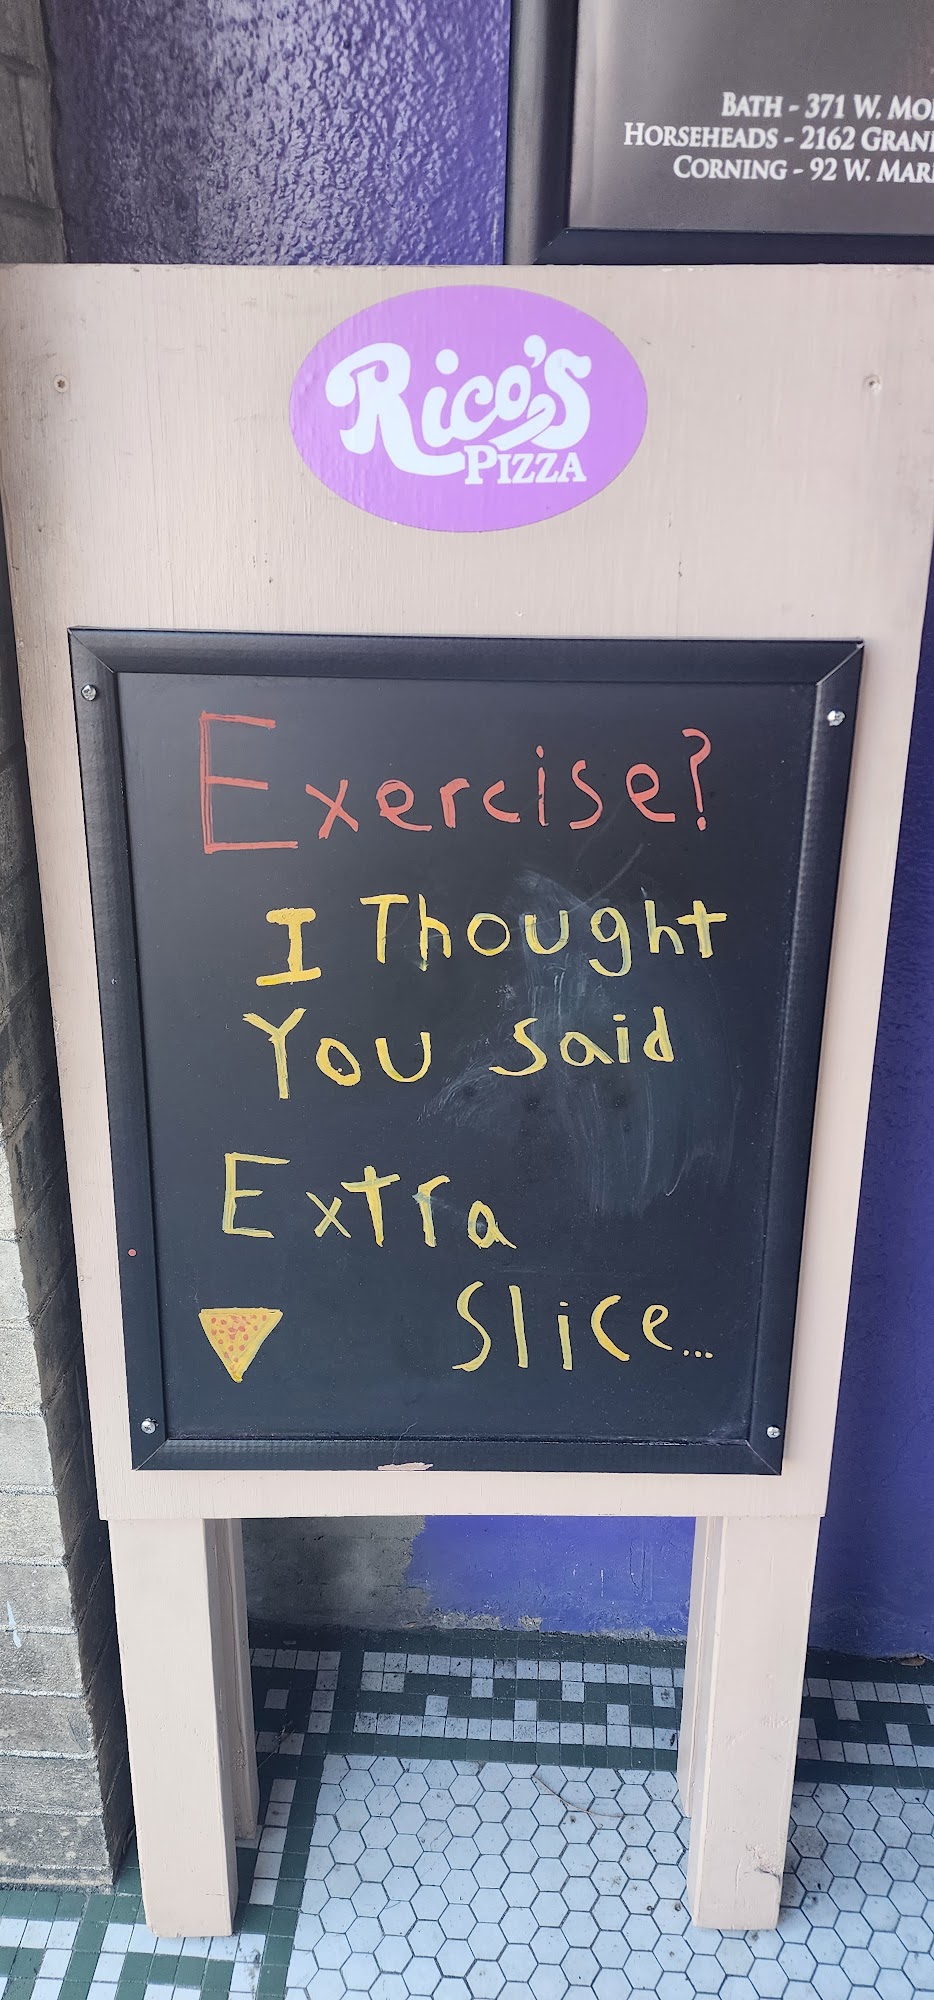 BATH - 371 W. MO
HORSEHEADS - 2162 GRAN
CORNING - 92 W. MAR
Rico's
PIZZA
Exercise?
I Thought
You said
Extra
Slice...